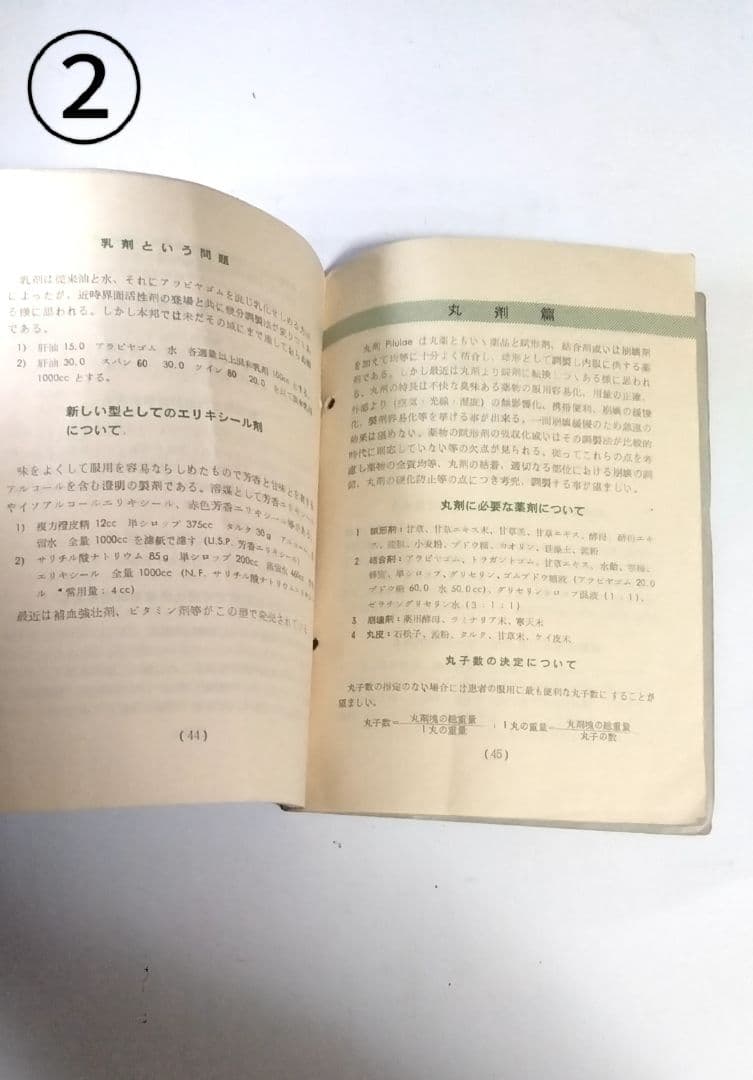 ②
乳剤という問題
乳剤は従来油と水、それにアラビヤゴムを混じ乳化せしめる方法
によったが、近時界面活性剤の登場と共に幾分調製法が変りつゝあ
る様に思われる。しかし本邦では未だその域にまで達して
である。
1) 肝油 15.0 アラビヤゴム 水 各適量以上混和乳剤 100cc とする。
2) 肝油 30.0 スパン 60 30.0 ツイン 80 20.0
1000cc とする。
新しい型としてのエリキシール剤
について
味をよくして服用を容易ならしめたもので芳香と甘味とを有する
アルコールを含む澄明の製剤である。溶媒として芳香エリキシール
やイソアルコールエリキシール、赤色芳香エリキシール等がある。
1) 複方橙皮精 12cc 単シロップ 375cc タルク 30g アルコール
溜水 全量 1000cc を濾紙で濾す (U.S.P. 芳香エリキシール)
2) サリチル酸ナトリウム 85g 単シロップ 200cc
エリキシール 全量 1000cc (N.F. サリチル酸ナトリウム
ル 常用量:4cc)
最近は補血強壮剤、ビタミン剤等がこの型で発売されている。
(44)
丸剤篇
丸剤 Pilulae は丸薬ともいゝ薬品と賦形剤、結合剤或いは崩壊剤
を加えて均等に十分よく結合し、球形として調製し内服に供する薬
剤である。しかし最近は丸剤より錠剤に転換しつゝある様に思われ
る。丸剤の特長は不快な臭味ある薬物の服用容易化、用量の正確、
外部より(空気・光線・湿度)の無影響化、携帯便利、崩壊の緩慢
化、製剤容易化等を挙げる事が出来る。一面崩壊緩慢のため急速の
効果は望めない。薬物の賦形剤の吸収化或いはその調製法が比較的
時代に順応していない等の欠点が見られる。従ってこれらの点を考
慮し薬物の全質均等、丸剤の結着、適切なる部位における崩壊の調
節、丸剤の硬化防止等の点につき考究、調製する事が望ましい。
丸剤に必要な薬剤について
1 賦形剤:甘草、甘草エキス末、甘草羔、甘草エキス、酵母、酵母エキ
ス、龍胆、小麦粉、ブドウ糖、カオリン、珪藻土、澱粉
2 結合剤:アラビヤゴム、トラガントゴム、甘草エキス、水飴、
蜂蜜、単シロップ、グリセリン、ゴムブドウ糖液(アラビヤゴム 20.0
ブドウ糖 60.0 水 50.0cc)、グリセリンシロップ混液(1:1)、
ゼラチングリセリン水(3:1:1)
3 崩壊剤:薬用酵母、ラミナリア末、寒天末
4 丸皮:石松子、澱粉、タルク、甘草末、ケイ皮末
丸子数の決定について
丸子数の指定のない場合には患者の服用に最も便利な丸子数にすることが
望ましい。
丸子数=丸剤塊の総重量/1丸の重量 ; 1丸の重量=丸剤塊の総重量/丸子の数
(45)